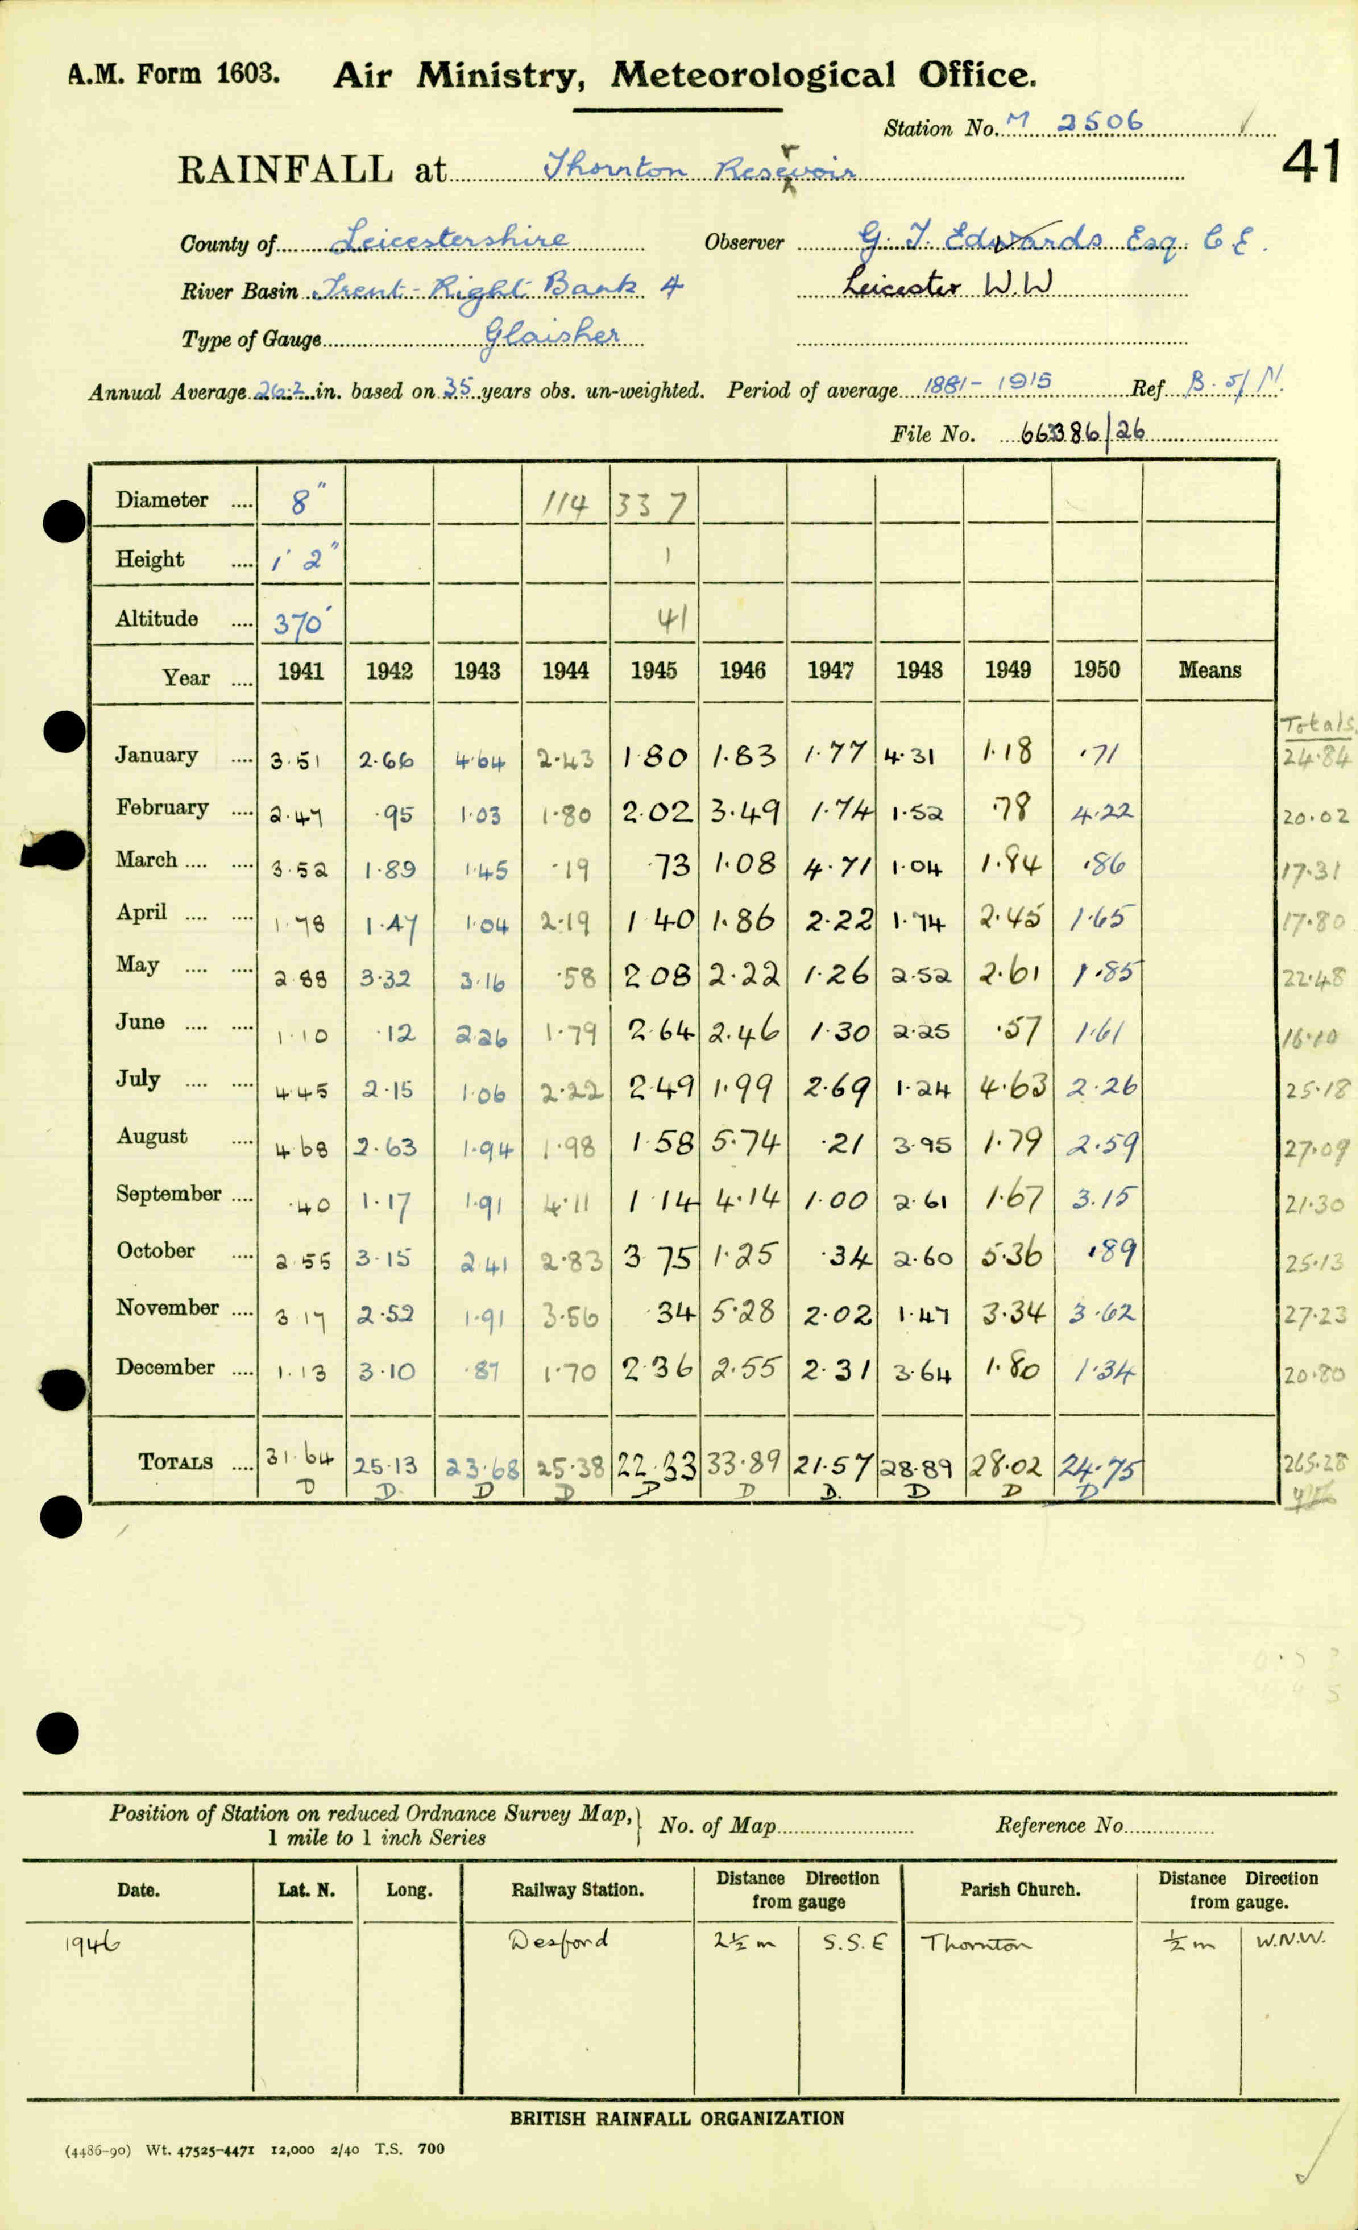 A.M. Form 1603. Air Ministry, Meteorological Office.
Station No. M 2506
RAINFALL at Thornton Reservoir 41
County of Leicestershire Observer G. T. Edwards Esq. C.E.
River Basin Trent - Right Bank 4 Leicester W.W
Type of Gauge Glaisher
Annual Average 26.2 in. based on 35 years obs. un-weighted. Period of average 1881 - 1915 Ref B. of N.
File No. 663386/26
Diameter .... 8" 114 33 7
Height .... 1' 2" 1
Altitude .... 370' 41
Year .... 1941 1942 1943 1944 1945 1946 1947 1948 1949 1950 Means
Totals
January .... 3.51 2.66 4.64 2.43 1.80 1.83 1.77 4.31 1.18 .71 24.84
February .... 2.47 .95 1.03 1.80 2.02 3.49 1.74 1.52 .78 4.22 20.02
March .... .... 3.52 1.89 1.45 .19 .73 1.08 4.71 1.04 1.84 .86 17.31
April .... .... 1.78 1.47 1.04 2.19 1 40 1.86 2.22 1.74 2.45 1.65 17.80
May .... .... 2.88 3.32 3.16 .58 2 08 2.22 1.26 2.52 2.61 1.85 22.48
June .... .... 1.10 .12 2.26 1.79 2.64 2.46 1.30 2.25 .57 1.61 16.10
July .... .... 4.45 2.15 1.06 2.22 2.49 1.99 2.69 1.24 4.63 2.26 25.18
August .... 4.68 2.63 1.94 1.98 1.58 5.74 .21 3.95 1.79 2.59 27.09
September .... .40 1.17 1.91 4.11 1 14 4.14 1.00 2.61 1.67 3.15 21.30
October .... 2.55 3.15 2.41 2.83 3 75 1.25 .34 2.60 5.36 .89 25.13
November .... 3.17 2.52 1.91 3.56 .34 5.28 2.02 1.47 3.34 3.62 27.23
December .... 1.13 3.10 .87 1.70 2.36 2.55 2.31 3.64 1.80 1.34 20.80
TOTALS .... 31.64 25.13 23.68 25.38 22.33 33.89 21.57 28.89 28.02 24.75 265.28
D D D D D D D. D D D
Position of Station on reduced Ordnance Survey Map,} No. of Map Reference No.
1 mile to 1 inch Series
Date. Lat. N. Long. Railway Station. Distance Direction from gauge Parish Church. Distance Direction from gauge.
1946 Desford 2½ m S.S.E Thornton ½ m W.N.W.
BRITISH RAINFALL ORGANIZATION
(4486-90) Wt. 47525-4471 12,000 2/40 T.S. 700